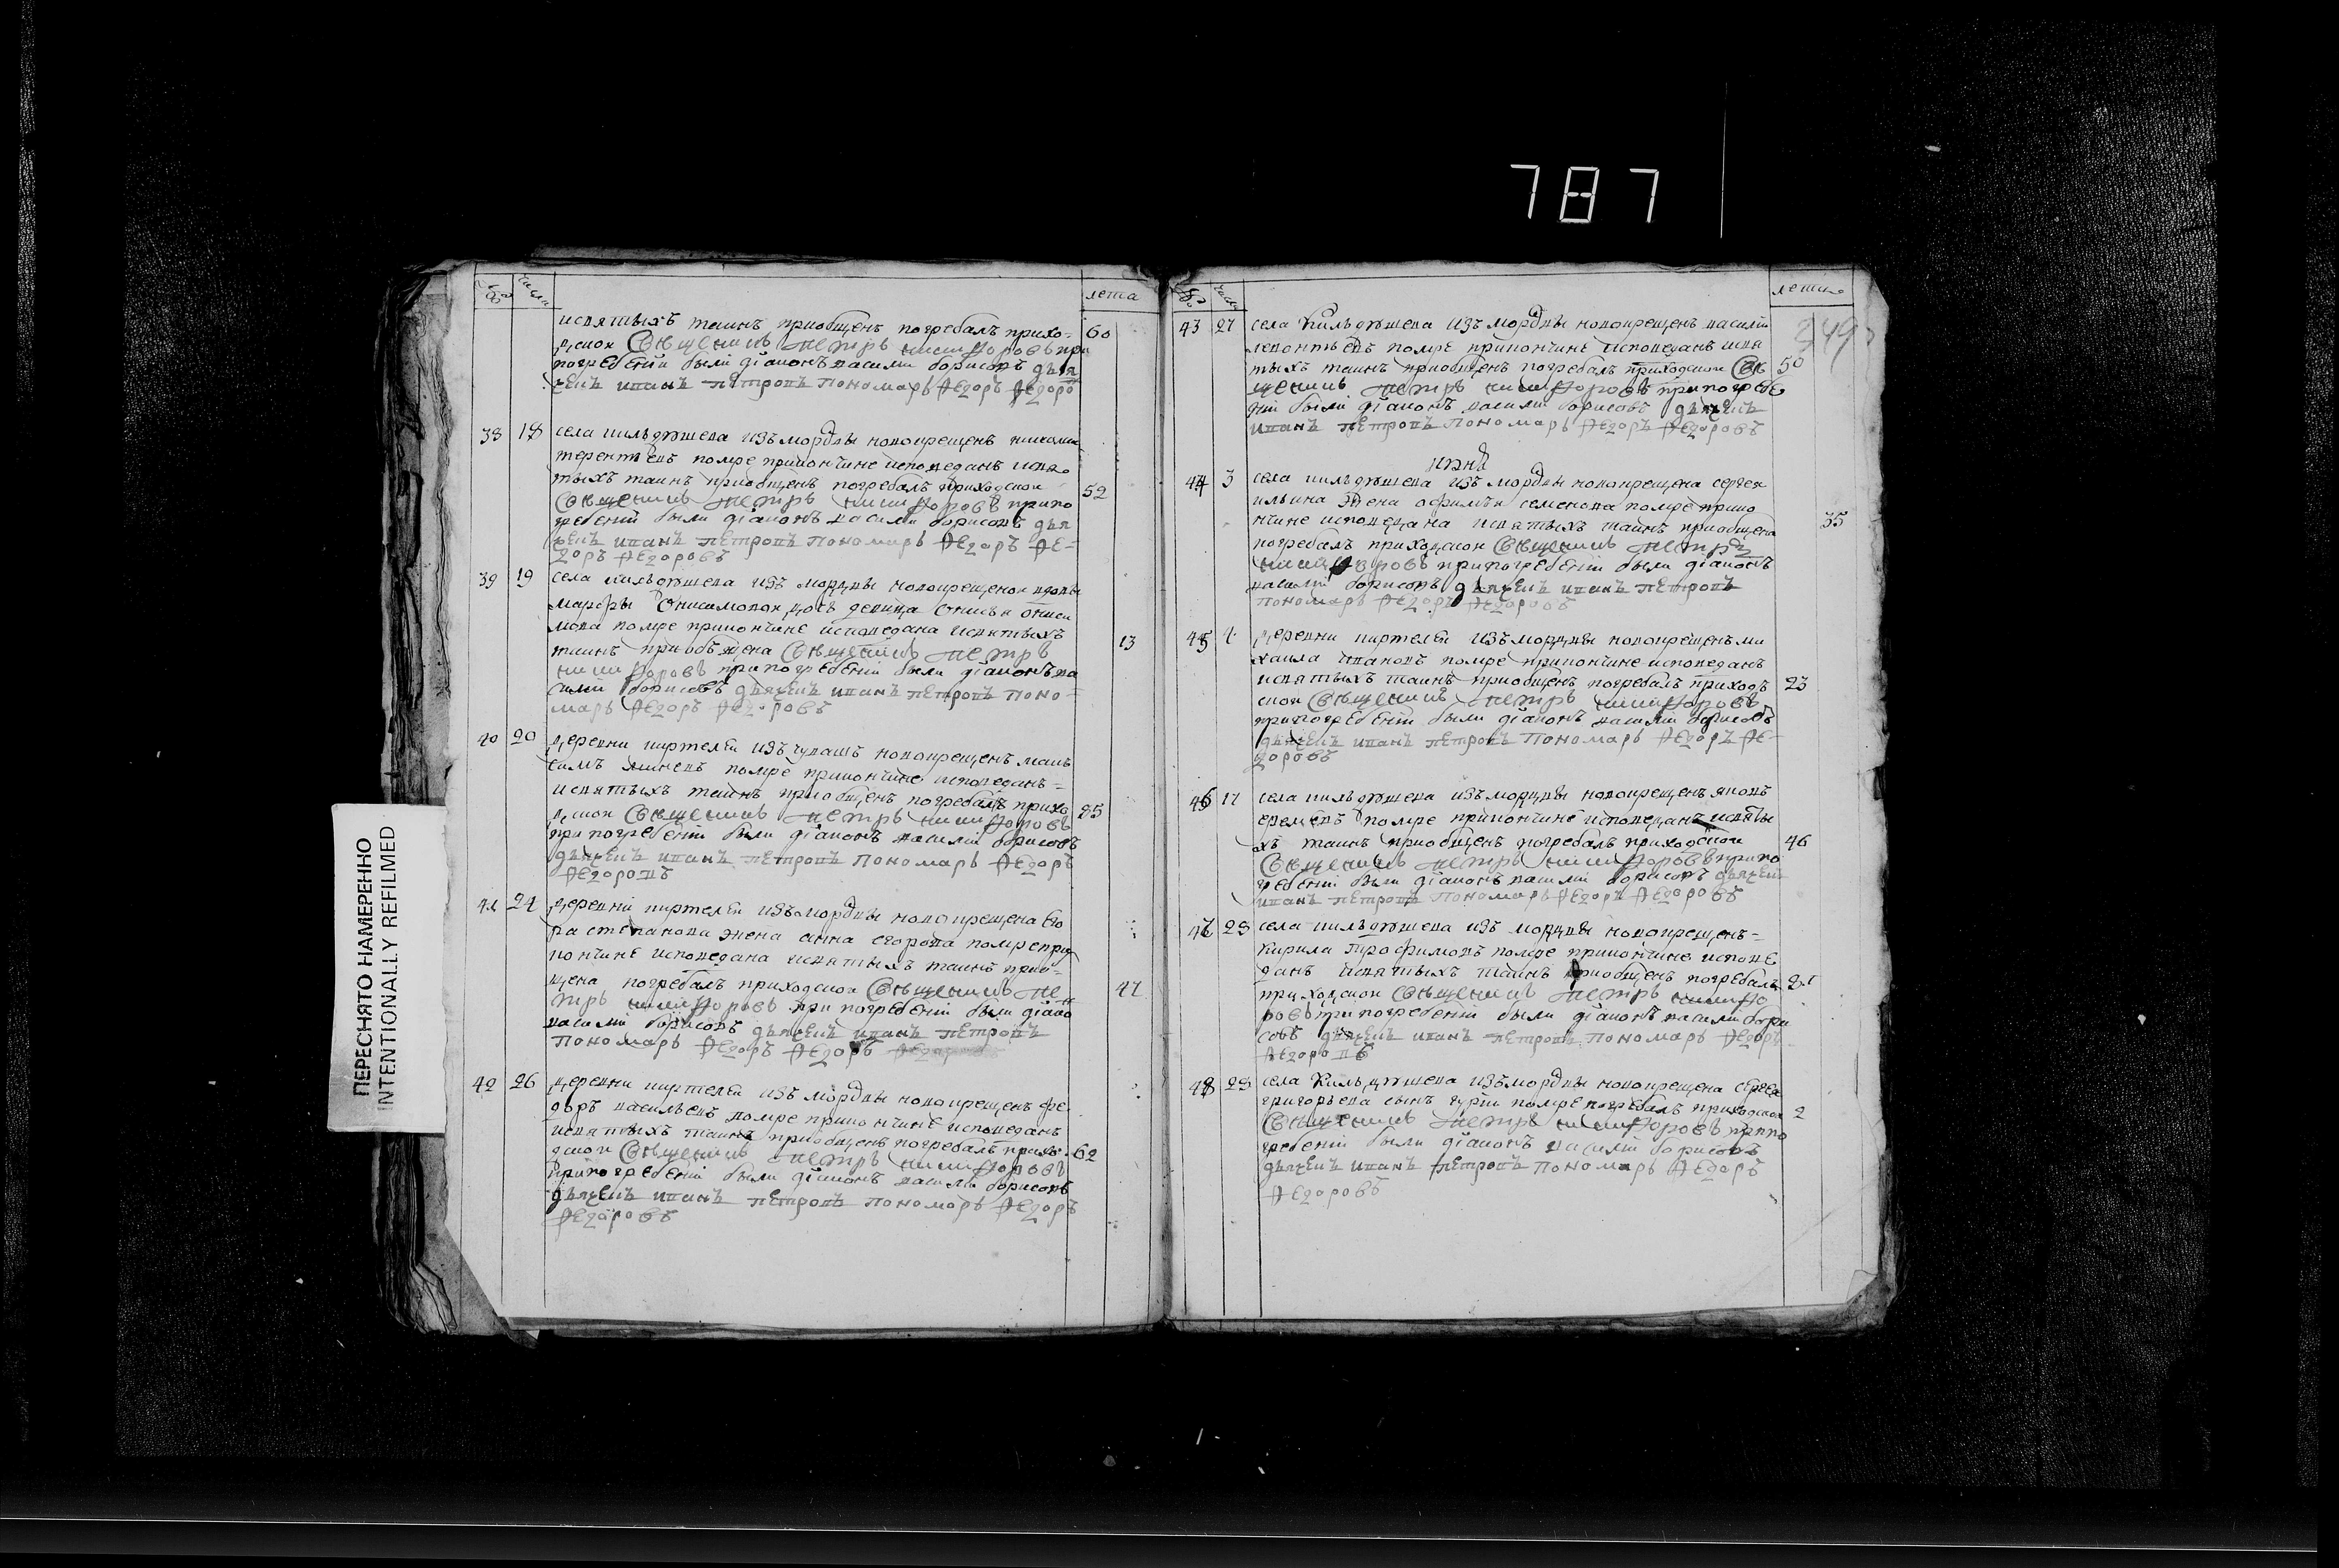 787
ПЕРЕСНЯТО НАМЕРЕННО
INTENTIONALLY REFILMED
числа
лета
исвятыхъ таинъ приобщенъ погребалъ прихо- 60
дской Священникъ Петръ Никифоровъ при
погребениі были діаконъ василиі борисовъ дья
чекъ иванъ петровъ пономарь Федоръ Федоро
38 18 села килдюшева изъ мордвы новокрещенъ николаи
терентьевъ помре прикончине исповеданъ исвя
тыхъ таинъ приобщенъ погребалъ приходской
Священникъ Петръ Никифоровъ припо 52
гребениі были діаконъ василиі борисовъ дья
чекъ иванъ петровъ пономарь Федоръ Фе-
доръ Федоровъ
39 19 села килдюшева изъ мордвы новокрещеной вдовы
марфы Онисимовой дочь девица
мова помре прикончине исповедана исвятыхъ
таинъ приобщена Священникъ Петръ 13
Никифоровъ припогребениі были діаконъ ва
силиі борисовъ дьячекъ иванъ петровъ поно-
марь Федоръ Федоровъ
40 20 деревни киртели изъ чувашъ новокрещенъ мак
симъ помре прикончине исповеданъ-
исвятыхъ таинъ приобщенъ погребалъ прихо
дской Священникъ Петръ Никифоровъ 25
при погребениі были діаконъ василиі борисовъ
дьячекъ иванъ петровъ пономарь Федоръ
Федоровъ
41 24 деревни киртели изъ мордвы новокрещена Его
ра степанова жена анна егорова помре при
кончине исповедана исвятыхъ таинъ приоб-
щена погребалъ приходской Священникъ Пе
тръ Никифоровъ при погребениі были діако
василиі борисовъ дьячекъ иванъ петровъ
пономарь Федоръ Федоръ
42 26 деревни киртели изъ мордвы новокрещенъ фе
доръ васильевъ помре прикончине исповеданъ
исвятыхъ таинъ приобщенъ погребалъ прихо
дской Священникъ Петръ Никифоровъ 62
припогребениі были діаконъ василиі борисовъ
дьячекъ иванъ петровъ пономарь Федоръ
Федоровъ
лета
349
43 27 села Килдюшева изъ мордвы новокрещенъ василиі
леонтьевъ помре прикончине исповеданъ исвя
тыхъ таинъ приобщенъ погребалъ приходской Свя 50
щенникъ Петръ Никифоровъ припогребе
ниі были діаконъ василиі борисовъ дьячекъ
иванъ петровъ пономарь Федоръ Федоровъ
июнь
44 3 села килдюшева изъ мордвы новокрещена сергея
ильина жена офимья семенова помре прико
нчине исповедана исвятыхъ таинъ приобщена 35
погребалъ приходской Священникъ Петръ
Никифоровъ припогребениі были діаконъ
василиі борисовъ дьячекъ иванъ петровъ
пономарь Федоръ Федоровъ
45 4 деревни киртели изъ мордвы новокрещенъ ми
хаила ивановъ помре прикончине исповеданъ
исвятыхъ таинъ приобщенъ погребалъ приход 23
ской Священникъ Петръ Никифоровъ
припогребениі были діаконъ василиі борисовъ
дьячекъ иванъ петровъ пономарь Федоръ Фе-
доровъ
46 17 села килдюшева изъ мордвы новокрещенъ яковъ
еремеевъ помре прикончине исповеданъ исвяты
хъ таинъ приобщенъ погребалъ приходской 46
Священникъ Петръ Никифоровъ припо
гребениі были діаконъ василиі борисовъ дьячекъ
иванъ петровъ пономарь Федоръ Федоровъ
села килдюшева изъ мордвы новокрещенъ-
Кирила трофимовъ помре прикончине испове
данъ исвятыхъ таинъ приобщенъ погребалъ
приходской Священникъ Петръ Никифо
ровъ припогребениі были діаконъ василиі бори
совъ дьячекъ иванъ петровъ пономарь Федоръ
Федоровъ
48 села Килдюшева изъ мордвы новокрещена сергея
григорьева сынъ гуриі помре погребалъ приходской 2
Священникъ Петръ Никифоровъ припо
гребениі были діаконъ василиі борисовъ
дьячекъ иванъ петровъ пономарь Федоръ
Федоровъ